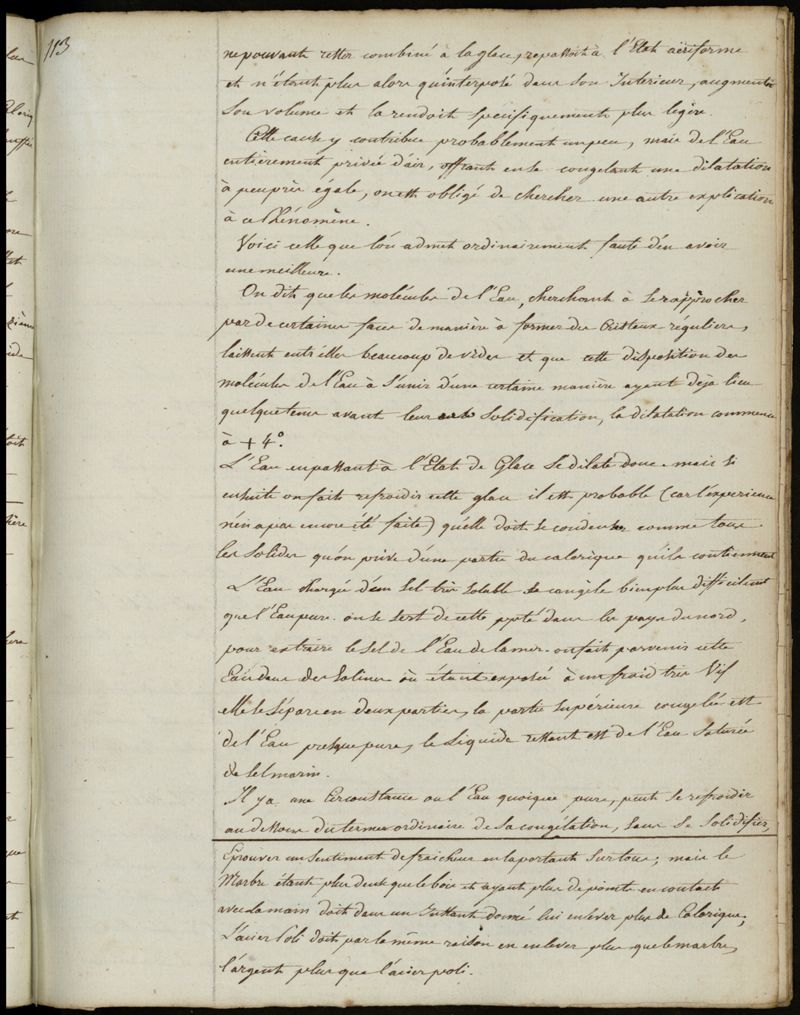 113
ne pouvant rester combiné à la glace, repassoit à l'Etat aëriforme
et n'étant plus alors qu'interposé dans son Interieur, augmentoit
son volume et la rendoit spécifiquement plus legère.
Cette cause y contribue probablement un peu, mais de l'Eau
entierement privée d'air, offrant en se congelant une dilatation
à peu près égale, on est obligé de chercher une autre explication
à ce Phénomène.
Voici celle que l'on admet ordinairement faute d'en avoir
une meilleure.
On dit que les molécules de l'Eau, cherchant à se rapprocher
par de certaines faces de manière à former des Cristaux réguliers,
laissent entr'elles beaucoup de vides et que cette disposition des
molécules de l'Eau à s'unir d'une certaine manière ayant déja lieu
quelque tems avant leur solidification, la dilatation commence
à + 4°.
L'Eau en passant à l'Etat de Glace se dilate donc. mais si
ensuite on fait refroidir cette glace il est probable (car l'experience
n'en a pas encore été faite) qu'elle doit se condenser comme tous
les solides qu'on prive d'une partie du calorique qu'ils contiennent
L'Eau chargée d'un sel très soluble se congèle bien plus difficilement
que l'Eau pure. on se sert de cette pptè dans les pays du nord,
pour extraire le sel de l'Eau de la mer. on fait parvenir cette
Eau dans des Salines où étant exposée à un froid très Vif
elle se sépare en deux parties, la partie supérieure congelée est
de l'Eau presque pure, le liquide restant est de l'Eau saturée
de sel marin.
Il y a une Circonstance où l'Eau quoique pure, peut se refroidir
au dessous du terme ordinaire de sa congélation, sans se solidifier,
Eprouver un sentiment de fraicheur en la portant sur tous; mais le
Marbre étant plus dense que le bois et ayant plus de points en contact
avec la main doit dans un Instant donné lui enlever plus de Calorique,
L'acier Poli doit par la même raison en enlever plus que le marbre,
l'argent plus que l'acier poli.